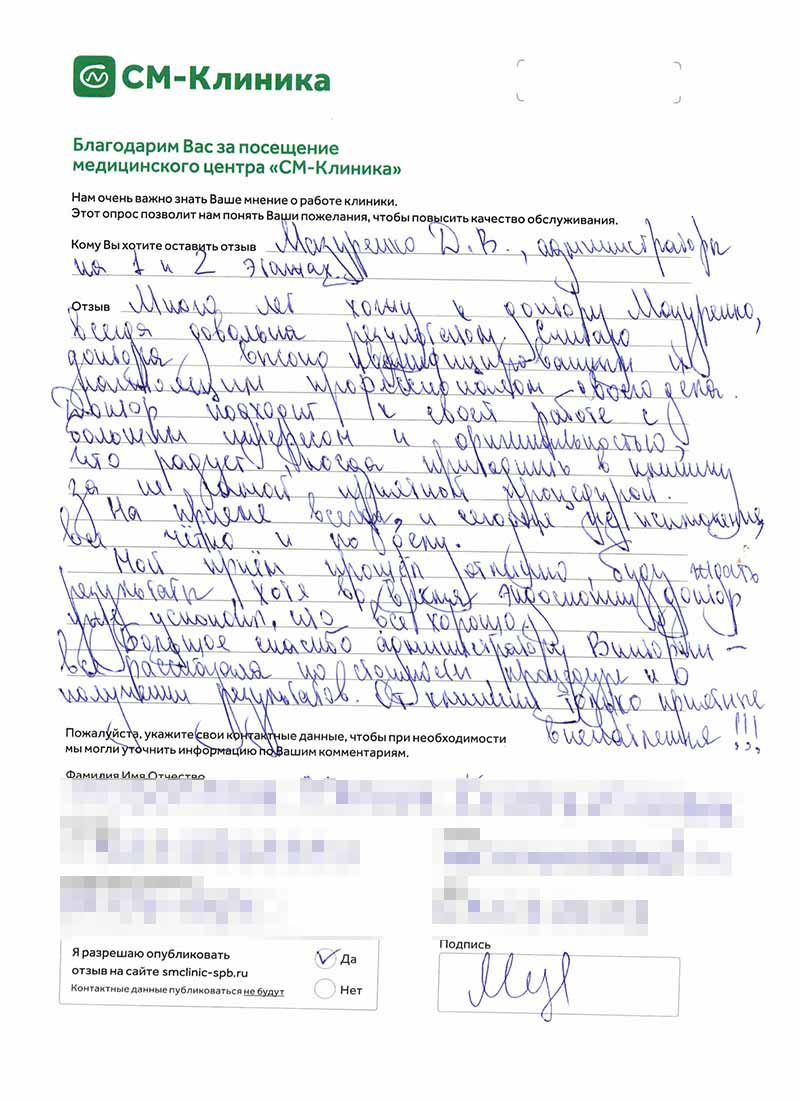 СМ-Клиника
Благодарим Вас за посещение
медицинского центра «СМ-Клиника»
Нам очень важно знать Ваше мнение о работе клиники.
Этот опрос позволит нам понять Ваши пожелания, чтобы повысить качество обслуживания.
Кому Вы хотите оставить отзыв Мазуренко Д.В., администраторы
на 1 и 2 этажах.
Отзыв Много лет хожу к доктору Мазуренко,
всегда довольна результатом. Считаю
доктора высоко квалифицированным и
настоящим профессионалом своего дела.
Доктор подходит к своей работе с
большим интересом и
что радует, когда приходишь в клинику
за не самой приятной процедурой.
На приеме всегда, и сегодня не исключение,
все чётко и по делу.
Мой приём прошёл отлично, буду ждать
результаты, хотя во время эндоскопии доктор
уже успокоил, что все хорошо.
Большое спасибо администратору Виктории —
все рассказала по стоимости процедур и о
получении результатов. От клиники только приятные
впечатления!!!
Пожалуйста, укажите свои контактные данные, чтобы при необходимости
мы могли уточнить информацию по Вашим комментариям.
Фамилия Имя Отчество
Я разрешаю опубликовать
отзыв на сайте smclinic-spb.ru
Контактные данные публиковаться не будут
Да
Нет
Подпись